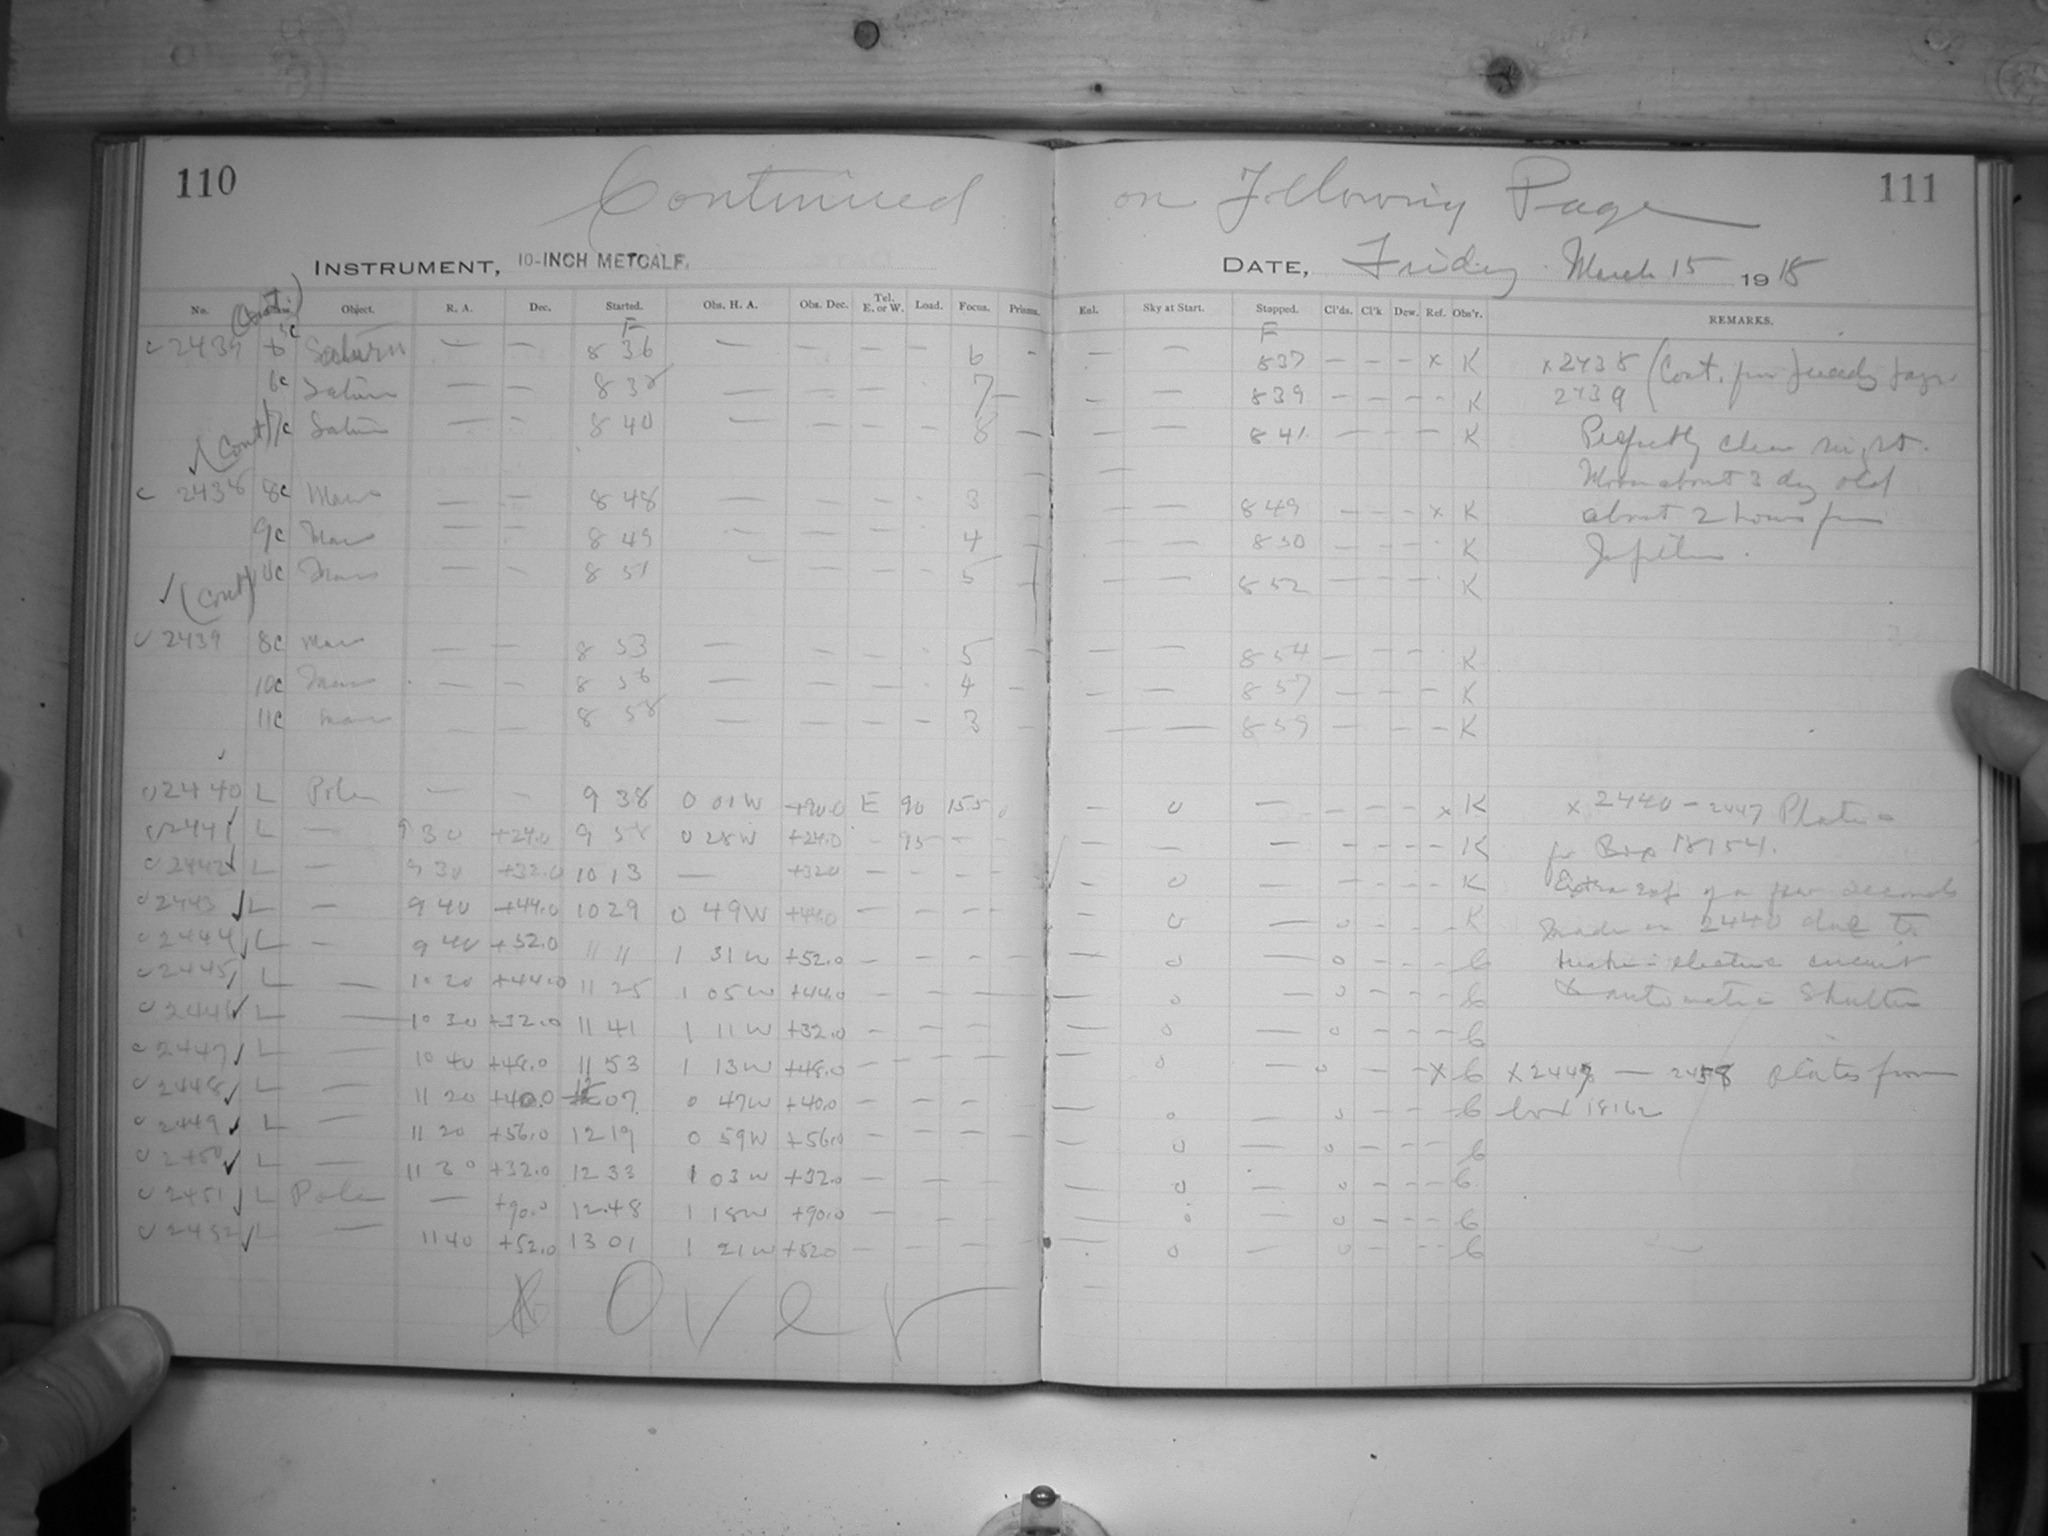 110 Continued on Following Page 111
INSTRUMENT, 10-INCH METCALF. DATE, Friday March 15 1918
No. (Cont.) Object. R. A. Dec. Started. Obs. H. A. Obs. Dec. Tel. E. or W. Load. Focus. Prisms. Exl. Sky at Start. Stopped. Cl'ds. Cl'k Dew. Ref. Obs'r. REMARKS.
F F
c 2439 5c Saturn — — 8 36 — — — 6 - — — 837 — — — x K x 2438 (Cont. from
6c Saturn — — 8 38 — — — 7 — — — 839 — — — - K 2439
(Cont) 7c Saturn — - 8 40 — — — 8 — — — 841 — — — K Perfectly clear night.
Moon about 3 day old
✓(Cont)
c 2438 8c Mars — — 8 48 — — — 3 — — 849 — — — x K about 2 hours from
9c Mars — — 8 49 — — — 4 — — — 850 — — — K Jupiter.
10c Mars — — 8 51 — — — 5 — — — 852 — — — K
✓(Cont)
2439 8c Mars — — 8 53 — — — 5 — — 854 — — — K
10c Mars — — 8 56 — — — 4 - — — 857 — — — K
11c Mars — — 8 58 — — — 3 — — — 859 — — — K
2440 L Pole — — 9 38 0 01W +90.0 E 90 155 — 0 — — — — x K x 2440 - 2447 Plates
2441 ✓ L — 9 30 +24.0 9 58 0 28W +24.0 - 95 — — — — — — — K for Box 18154.
2442 ✓ L — 9 30 +32.0 10 13 — +320 — — — — — 0 — — — — K Extra exp of a few seconds
2443 ✓ L — 9 40 +44.0 10 29 0 49W +44.0 — — — — — 0 — 0 — — — K made on 2440 due to
2444 ✓ L — 9 40 +52.0 11 11 1 31W +52.0 — — — — — 0 — 0 — — — C electric circuit
2445 ✓ L — 10 20 +44.0 11 25 1 05W +44.0 — — — — — 0 — 0 — — — C automatic Shutter
2446 ✓ L — 10 30 +32.0 11 41 1 11W +32.0 — — — — — 0 — 0 — — — C
2447 ✓ L — 10 40 +48.0 11 53 1 13W +48.0 — — — — 0 — 0 — — x C x 2447 — 2458 plates from
2448 ✓ L — 11 20 +40.0 12 07 0 47W +40.0 — — — — — 0 — 0 — — — C box 18162
2449 ✓ L — 11 20 +56.0 12 19 0 59W +56.0 — — — — — 0 — 0 — — — C
2450 ✓ L — 11 30 +32.0 12 33 1 03W +32.0 — — — — 0 — 0 — — — C
2451 ✓ L Pole — +90.0 12.48 1 18W +90.0 — — — — 0 — 0 — — — C
2452 ✓ L — 11 40 +52.0 13 01 1 21W +520 — — — — — 0 — 0 — — — C
Over